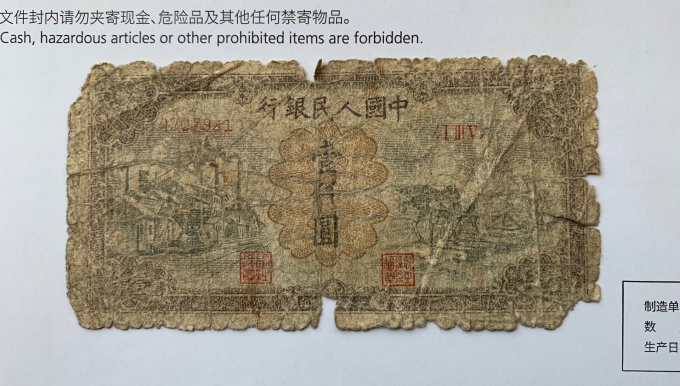 文件封内请勿夹寄现金、危险品及其他任何禁寄物品。
Cash, hazardous articles or other prohibited items are forbidden.
行銀民人國中
壹仟圓
制造单
数
生产日